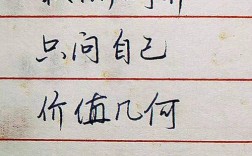 只问自己
价值几何